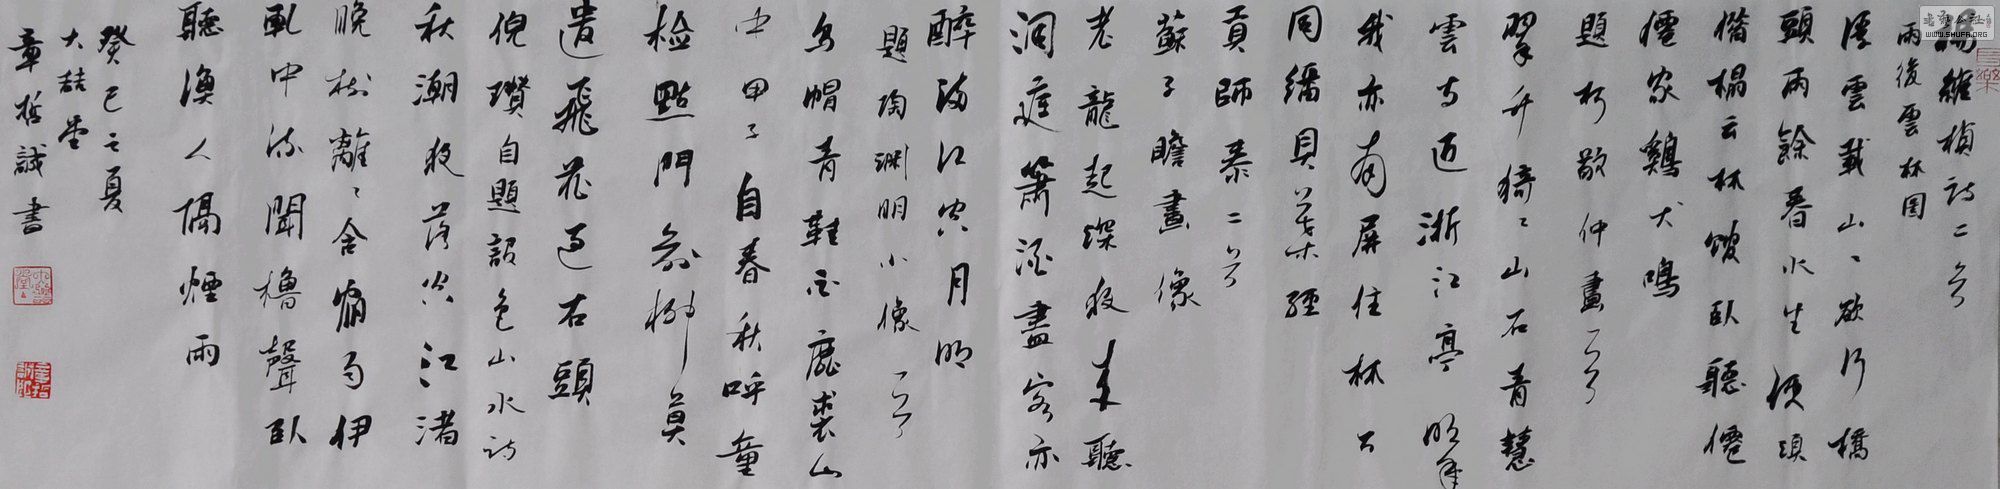 楊維楨詩二首
雨後雲林圖
浮雲載山山欲行橋
頭雨餘春水生便須
借榻云林館臥聽僊
僊家鷄犬鳴
題柯敬仲畫一首
翠竹猗猗山石青慧
雲寺近浙江亭明年
我亦南屏住林下
同繙貝葉經
貢師泰二首
蘇子瞻畫像
老龍起深夜來聽
洞庭簫酒盡客亦
醉滿江空月明
題陶淵明小像一首
烏帽青鞋白鹿裘山
中甲子自春秋呼童
檢點門前柳莫
遣飛花過石頭
倪瓚自題設色山水詩
秋潮夜落空江渚
晚樹離離含宿雨伊
軋中流聞櫓聲臥
聽漁人隔煙雨
癸巳之夏
大喆堂
章哲誠書
WWW.SHUFA.ORG